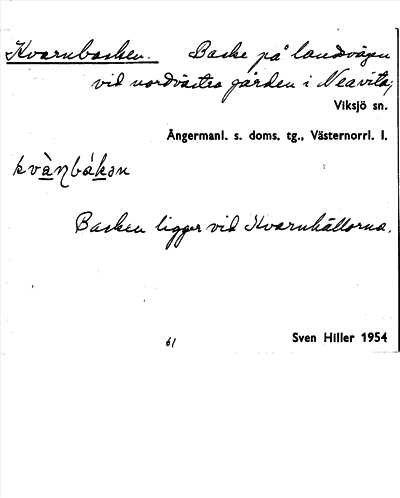 Kvarnbacken. Backe på landsvägen
vid nordvästra gården i Neavita,
Viksjö sn.
Ångermanl. s. doms. tg., Västernorrl. l.
kvànbákən
Backen ligger vid Kvarnkällorna.
61
Sven Hiller 1954